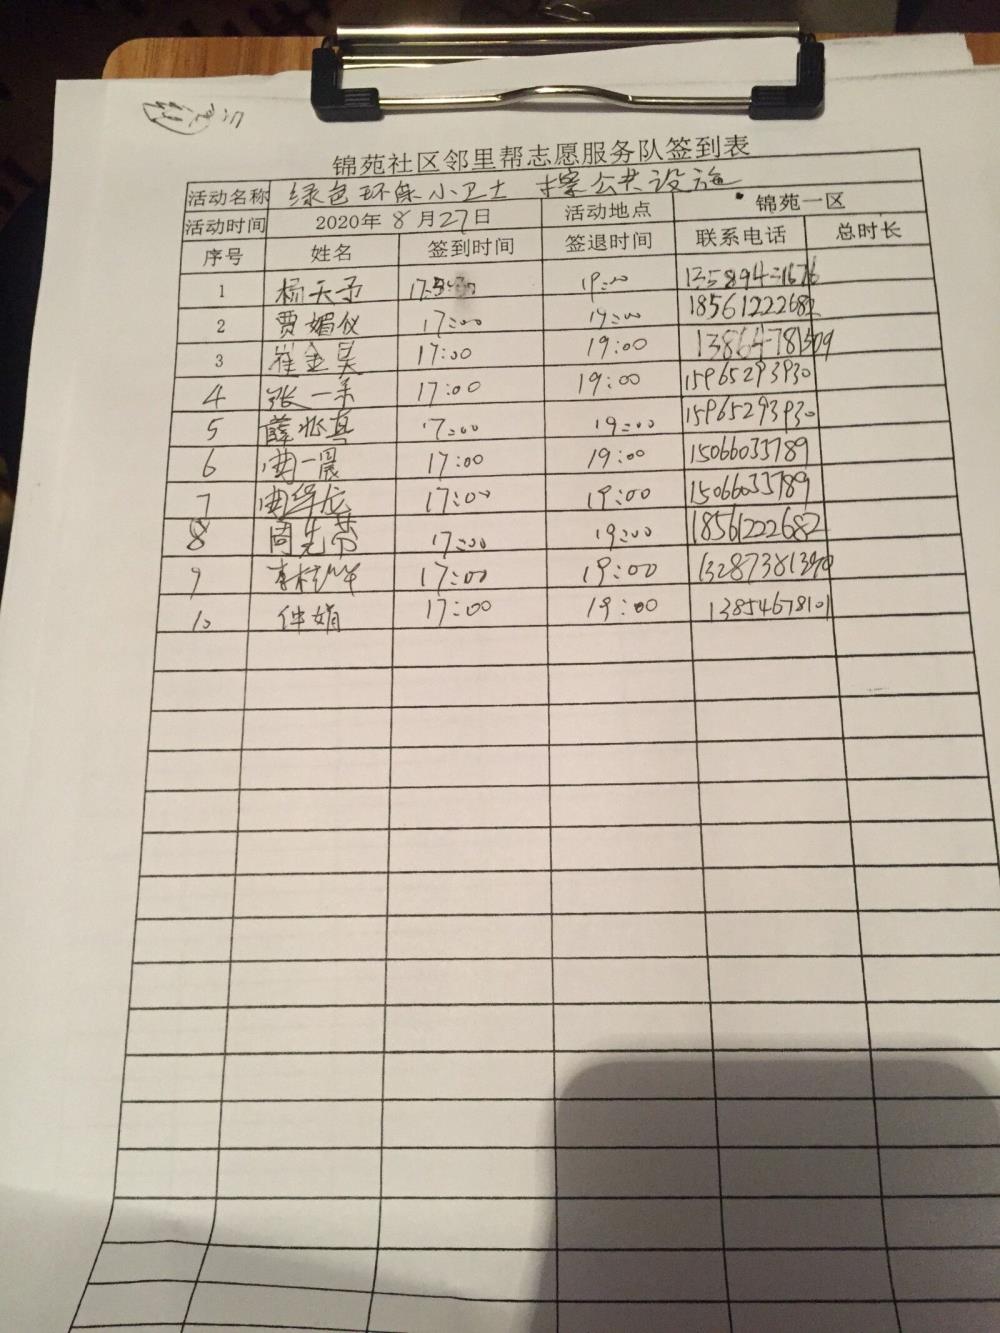 锦苑社区邻里帮志愿服务队签到表
活动名称 绿色环保小卫士 擦公共设施
活动时间 2020年8月27日 活动地点 锦苑一区
序号 姓名 签到时间 签退时间 联系电话 总时长
1 杨天予 19:00
2 贾媚仪 17:00 19:00 18561222682
3 崔金昊 17:00 19:00
4 张一禾 17:00 19:00 15965293930
5 薛兆真 17:00 19:00 15965293930
6 曲一晨 17:00 19:00 15066033789
7 曲华龙 17:00 19:00 15066033789
8 周先芹 17:00 19:00 18561222682
9 17:00 19:00
10 仲娟 17:00 19:00 13854678101